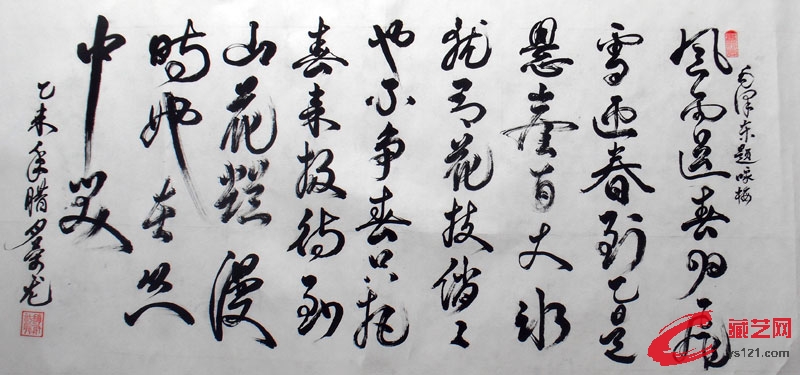 毛泽东题咏梅
风雨送春归飞
雪迎春到已是
悬崖百丈冰
犹有花枝俏々
也不争春只把
春来报待到
山花烂漫
時她在丛
中笑
乙未年腊
藏艺网
ys121.com